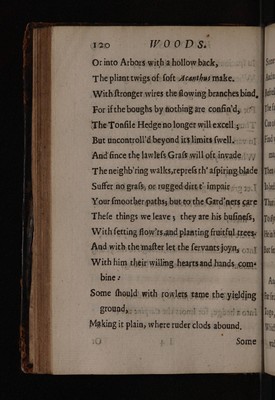 120 WOODS.
Or into Arbors with a hollow back,
The pliant twigs of soft Acanthus make.
With stronger wires the flowing branches bind,
For if the boughs by nothing are confin'd,
The Tonsile Hedge no longer will excell;
But uncontroll'd beyond its limits swell.
And since the lawless Grass will oft invade
The neighb'ring walks, repress th' aspiring blade
Suffer no grass, or rugged dirt t' impair
Your smoother paths; but to the Gard'ners care
These things we leave; they are his business,
With setting flow'rs and planting fruitful trees.
And with the master let the servants joyn,
With him their willing hearts and hands com-
bine:
Some should with rowlers tame the yielding
ground,
Making it plain, where ruder clods abound.
Some